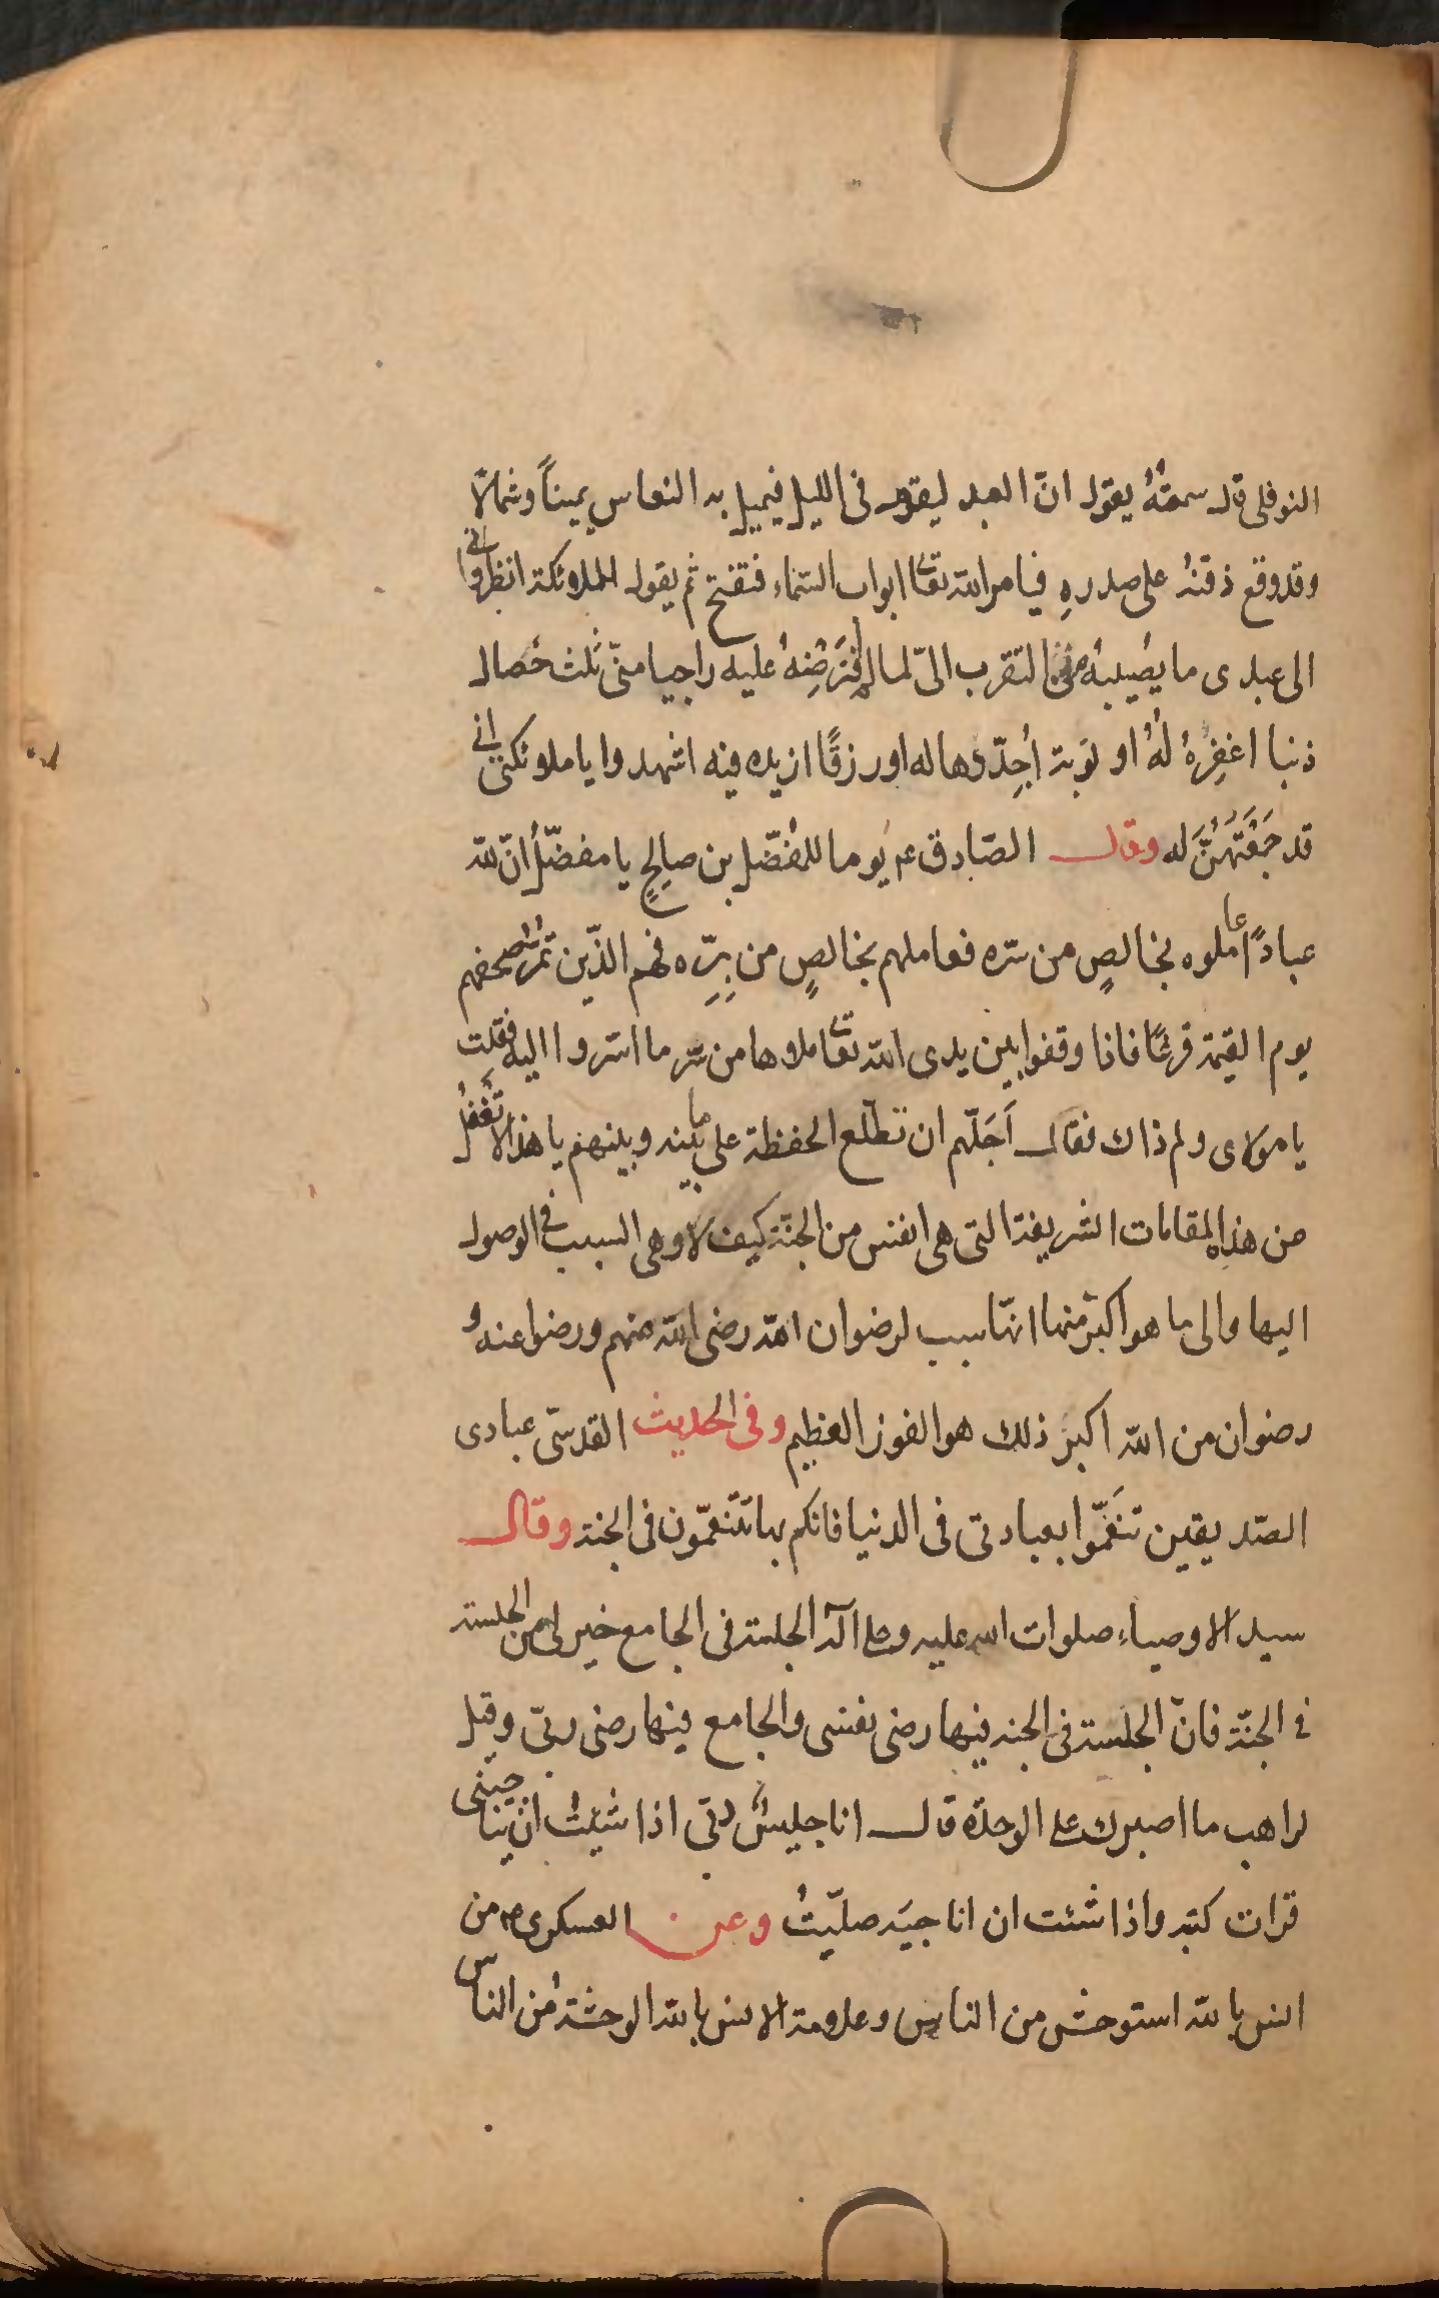 النوفلى قال سمعتُهُ يقول انّ العبد ليقوم فى الليل فيميل به النعاس يميناً وشمالاً
وقد وقع ذقنُهُ على صدرِهِ فيامر الله تعالى ابواب السّماء فتفتح ثم يقول للملائكة انظروا
الى عبدى ما يصيبُهُ فى التقرب الىّ لما لم افترضهُ عليه راجيا منّى ثلث خصال
ذنبا اغفِرُهُ لهُ او توبة اُجدّدها له او رزقًا ازيده فيه اشهدوا يا ملائكتى انى
قد جَمَعْتُهُنَّ له وقال الصّادق ع يوما للمُفضّل بن صالحٍ يا مفضّلُ انّ لله
عبادًا عاملوه بخالصٍ من سرّه فعاملهم بخالصٍ من بِرِّه فهم الذّين تمُرّ صحفهم
يوم القيمة فرغًا فاذا وقفوا بين يدى الله تعالى ملاها من سرّ ما اسروا اليه فقلت
يا مولاى ولم ذاك فقال اَجَلّهم ان تطّلع الحفظة على ما بينه وبينهم يا هذا لا تَغْفُل
من هذه المقامات الشريفة التى هى انفس من الجنّة كيف لا وهى السبب فى الوصول
اليها والى ما هو اكبر منها انّها سبب لرضوان الله رضى الله عنهم ورضوا عنه و
رضوان من الله اكبر ذلك هو الفوز العظيم وفى الحديث القدسّى عبادى
الصّديقين تنَعَّموا بعبادتى فى الدنيا فانكم بها تتنعمّون فى الجنة وقال
سيد الاوصياء صلوات الله عليه وعلى آله الجلسة فى الجامع خير لى من الجلسة
فى الجنّة فانّ الجلسة فى الجنة فيها رضى نفسى والجامع فيها رضى ربّى وقيل
لراهب ما اصبرك على الوحدة قال انا جليسُ ربّى اذا شئتُ ان يناجينى
قرات كتبه واذا شئت ان اناجيَه صلّيتُ وعن العسكرى ع من
انس بالله استوحش من الناس وعلامة الانس بالله الوحشةُ من الناس